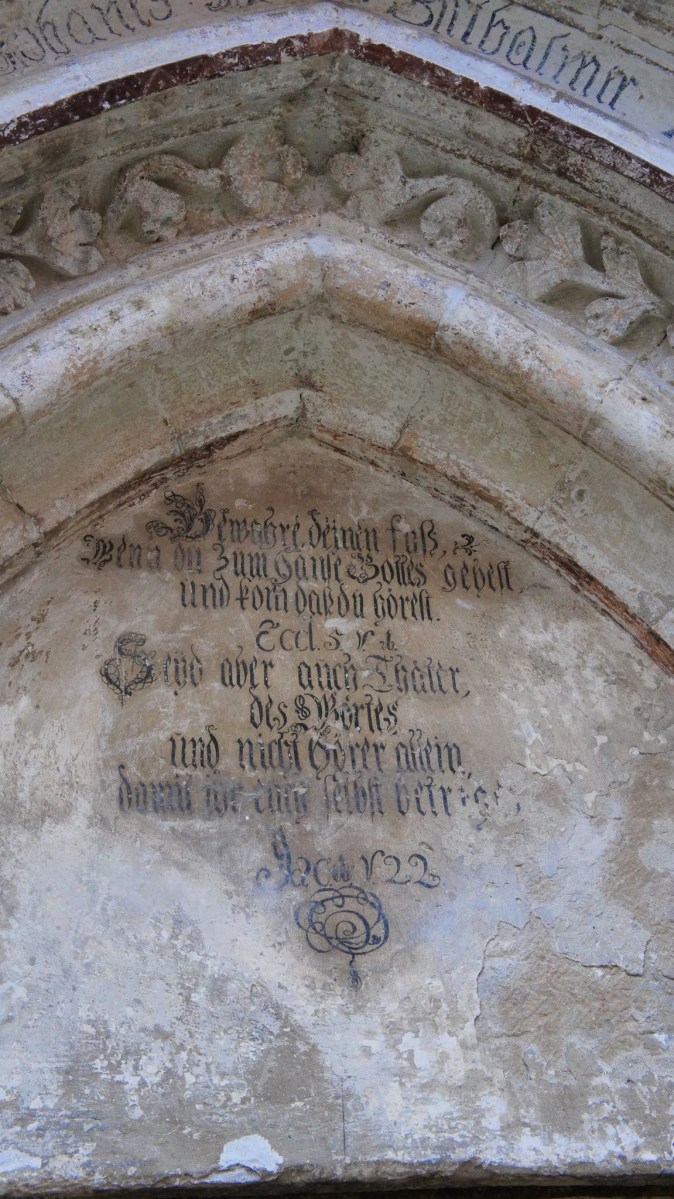 Johannis
Bewahre deinen fuß,
Wen̄ du zum Hause Gottes gehest,
und kom̄ daß du hörest.
Eccl. 5 v.
Seyd aber auch Thäter
des Wortes
und nicht Hörer allein,
damit ihr euch selbst betreget
Jac. 1 v 22